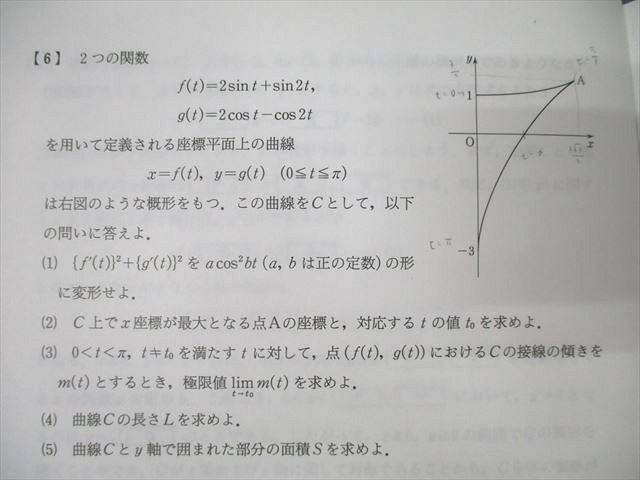 【6】 2つの関数
f(t)=2sin t+sin2t,
g(t)=2cos t−cos2t
を用いて定義される座標平面上の曲線
x=f(t), y=g(t) (0≦t≦π)
は右図のような概形をもつ．この曲線をCとして，以下
の問いに答えよ．
(1) {f′(t)}²+{g′(t)}² を a cos²bt (a, b は正の定数) の形
に変形せよ．
(2) C上でx座標が最大となる点Aの座標と，対応する t の値 t₀ を求めよ．
(3) 0<t<π, t≠t₀ を満たす t に対して，点 (f(t), g(t)) におけるCの接線の傾きを
m(t) とするとき，極限値 lim m(t) を求めよ．
t→t₀
(4) 曲線Cの長さLを求めよ．
(5) 曲線Cとy軸で囲まれた部分の面積Sを求めよ．
y
A
t=0
1
O
x
t=π
−3